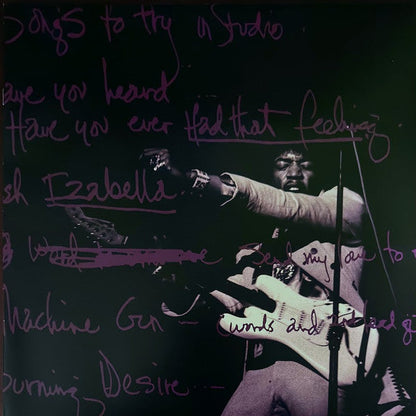 Songs to try in Studio
ave you heard
Have you ever Had that feeling
sh Izabella
Send my love to
Machine Gun — (words and
burning Desire —